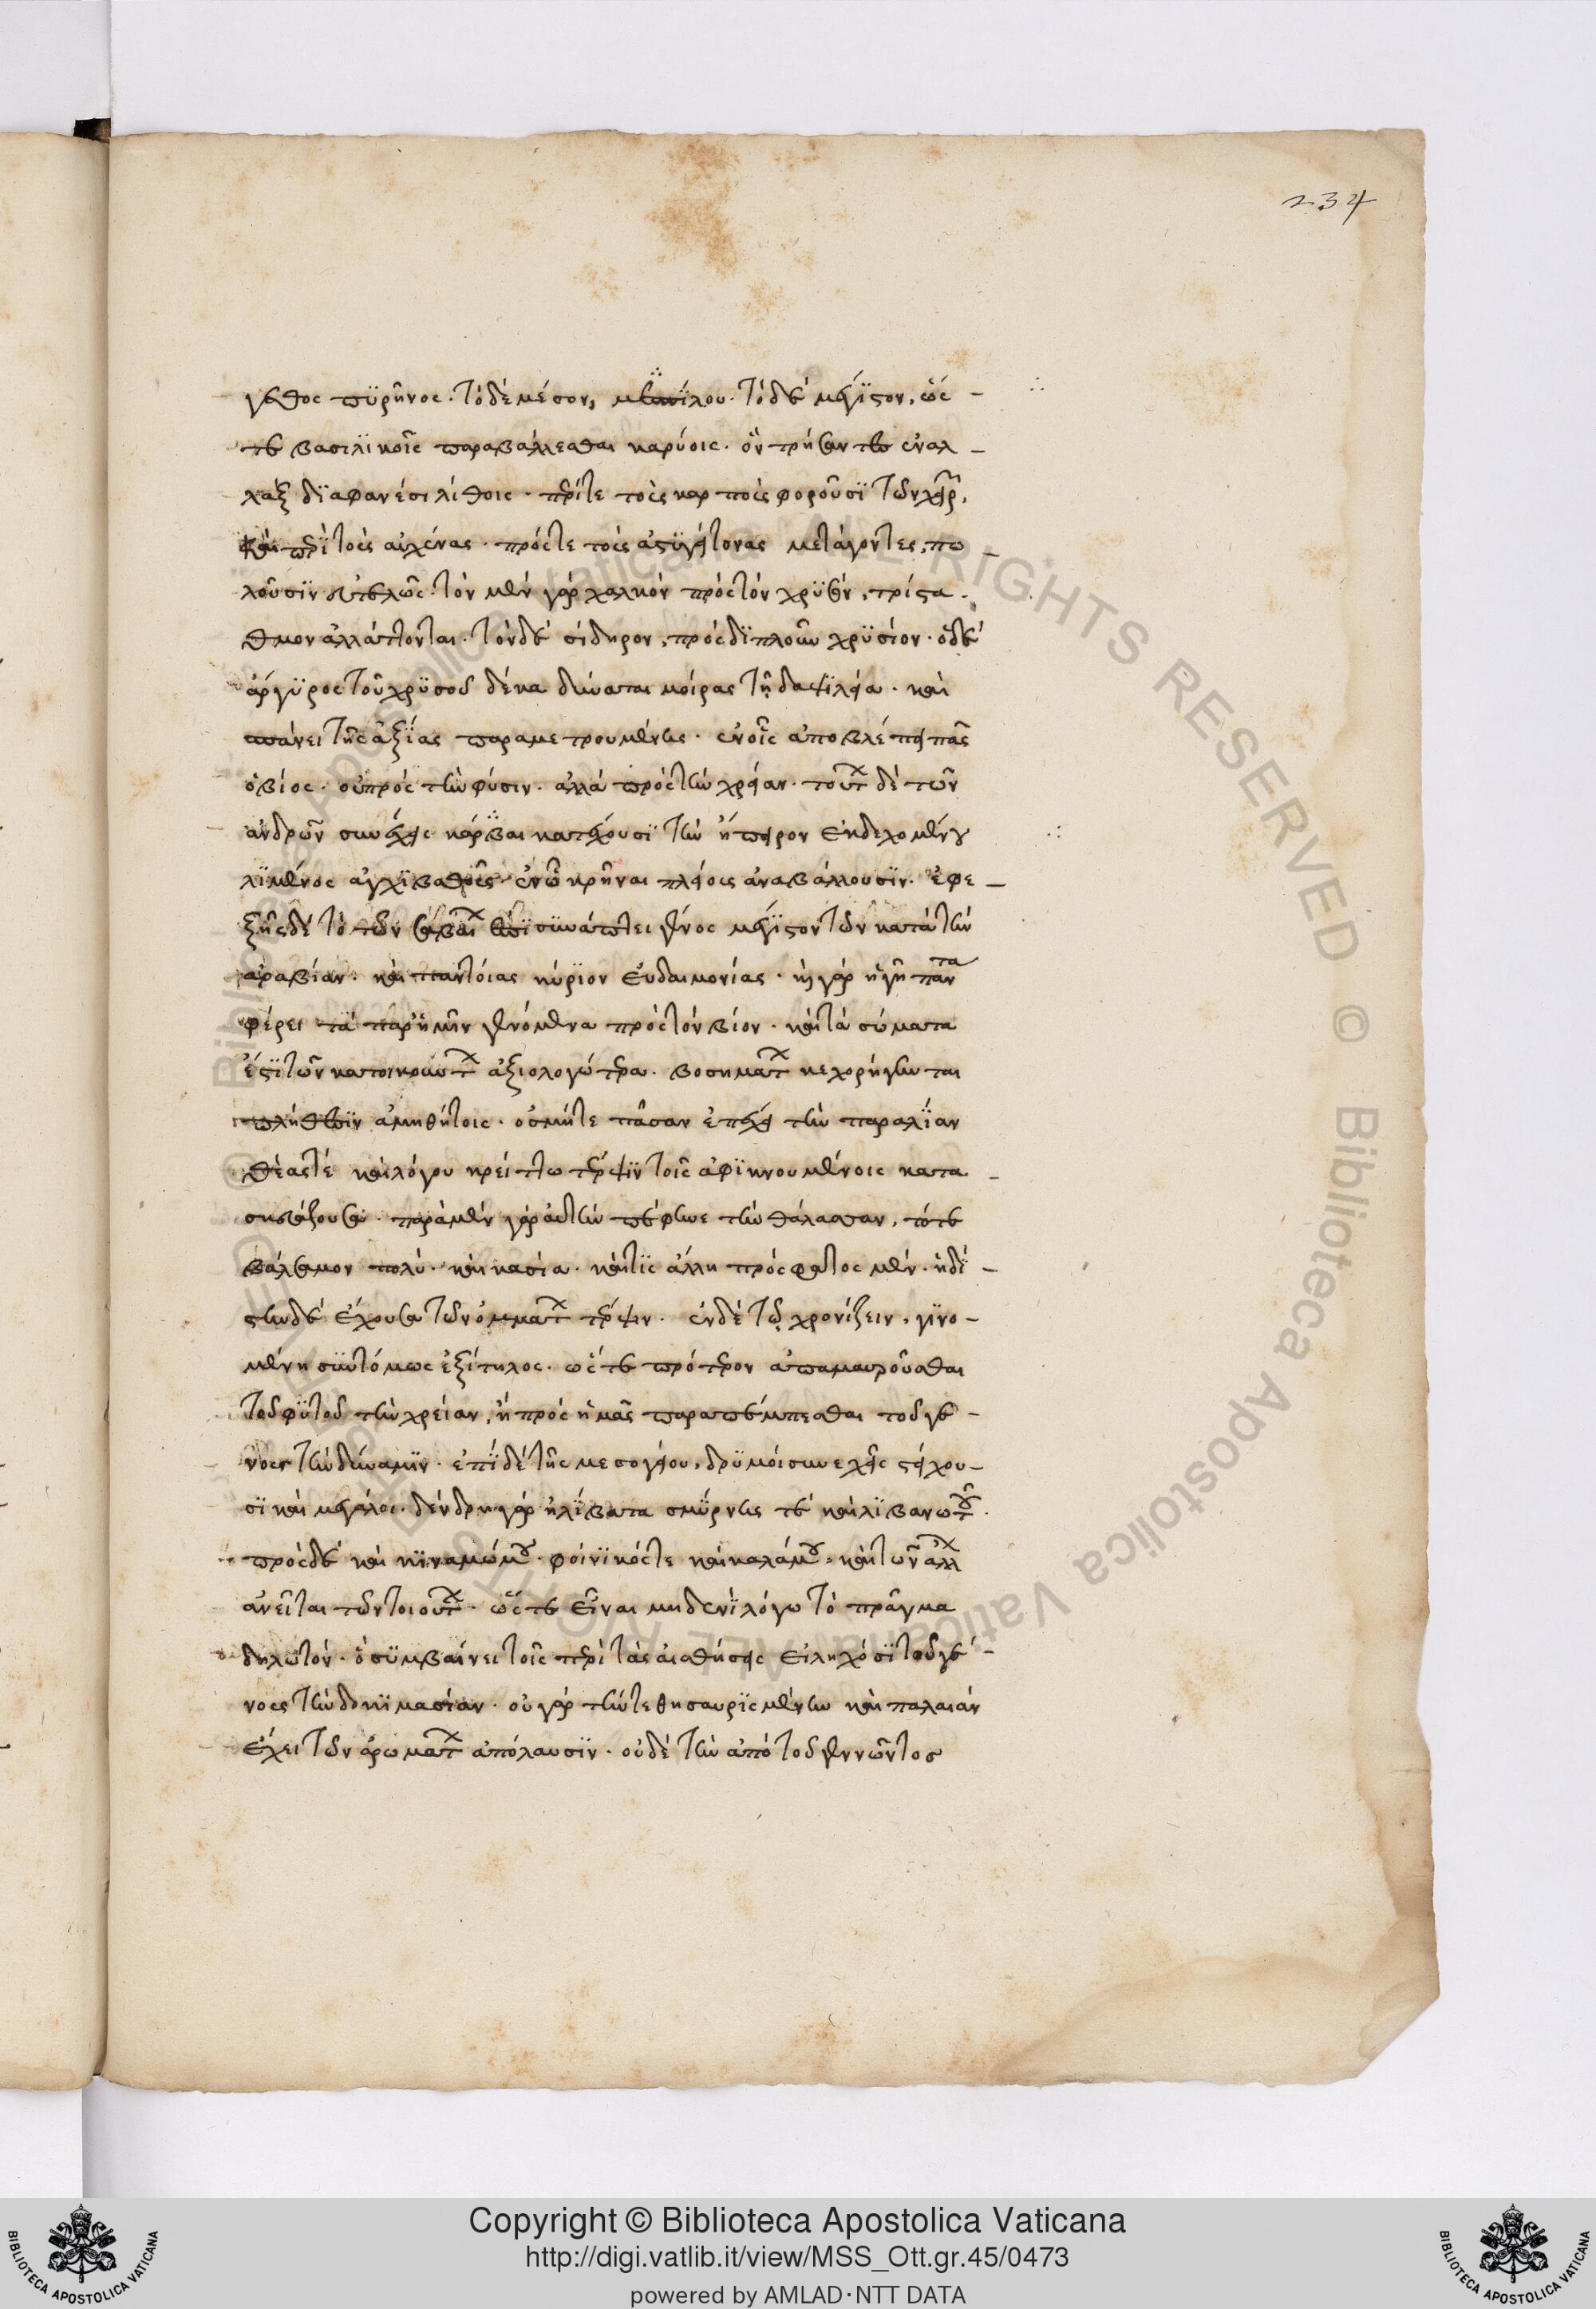 234
γεθος πυρῆνος. τὸ δὲ μέσον, μεσπίλου. τὸ δὲ μέγιστον, ὥσ-
τε βασιλικοῖς παραβάλλεσθαι καρύοις. ὃν τρήσαντες ἐναλ-
λὰξ διαφανέσι λίθοις. περί τε τοὺς καρποὺς φοροῦσι τῶν χειρῶν,
καὶ περὶ τοὺς αὐχένας. πρός τε τοὺς ἀστυγείτονας μετάγοντες, πω-
λοῦσιν εὐτελῶς. τὸν μὲν γὰρ χαλκὸν πρὸς τὸν χρυσὸν, τρίστα-
θμον ἀλλάττονται. τὸν δὲ σίδηρον, πρὸς διπλοῦν χρυσίον. ὁ δὲ
ἄργυρος τοῦ χρυσοῦ δέκα δύναται μοίρας τῇ δαψιλείᾳ. καὶ
σπάνει τῆς ἀξίας παραμετρουμένης. ἐν οἷς ἀποβλέπει πᾶς
ὁ βίος. οὐ πρὸς τὴν φύσιν. ἀλλὰ πρὸς τὴν χρείαν. τούτων δὲ τῶν
ἀνδρῶν συνεχεῖς κάρβαι κατέχουσι τὴν ἤπειρον ἐκδεχομένου
λιμένος ἀγχιβαθοῦς. ἐν ᾧ κρῆναι πλείους ἀναβάλλουσιν. ἐφε-
ξῆς δὲ τὸ τῶν σαβαίων ἔτι συνάπτει γένος μέγιστον τῶν κατὰ τὴν
ἀραβίαν. καὶ παντοίας κύριον εὐδαιμονίας. ἥ γὰρ ἡ γῆ πάντα
φέρει τὰ παρ' ἡμῖν γενόμενα πρὸς τὸν βίον. καὶ τὰ σώματα
ἐστὶ τῶν κατοικούντων ἀξιολογώτερα. βοσκημάτων κεχορήγηνται
πλήθεσιν ἀμυθήτοις. ὀσμή τε πᾶσαν ἐπέχει τὴν παραλίαν
θέας τὲ καὶ λόγου κρείττω τέρψιν τοῖς ἀφικνουμένοις κατα-
σκευάζουσα. παρὰ μὲν γὰρ αὐτὴν πέφυκε τὴν θάλασσαν, τό τε
βάλσαμον πολύ. καὶ κασία. καί τις ἄλλη πρόσφατος μὲν. ἡδί-
στην δὲ ἔχουσα τῶν ὀμμάτων τέρψιν. ἐν δὲ τῷ χρονίζειν, γινο-
μένη συντόμως ἐξίτηλος. ὥστε πρότερον ἀπαμαυροῦσθαι
τοῦ φυτοῦ τὴν χρείαν, ἢ πρὸς ἡμᾶς παραπέμπεσθαι τοῦ γέ-
νους τὴν δύναμιν. ἐπὶ δὲ τῆς μεσογείου, δρυμοὶ συνεχεῖς στείχου-
σι καὶ μεγάλοι. δένδρη γὰρ ἠλίβατα σμύρνης τὲ καὶ λιβανωτοῦ.
πρὸς δὲ καὶ κιναμώμου. φοίνικός τε καὶ καλάμου. καὶ τῶν ἄλλων
ἀνεῖται τῶν τοιούτων. ὥστε εἶναι μηδενὶ λόγω τὸ πρᾶγμα
δηλωτόν. ὃ συμβαίνει τοῖς περὶ τὰς αἰσθήσεις εἰληχόσι τοῦ γέ-
νους τὴν δοκιμασίαν. οὐ γὰρ τήν τε θησαυρισμένην καὶ παλαιὰν
ἔχει τῶν ἀρωμάτων ἀπόλαυσιν. οὐδὲ τὴν ἀπὸ τοῦ γεννῶντος
Copyright © Biblioteca Apostolica Vaticana
http://digi.vatlib.it/view/MSS_Ott.gr.45/0473
powered by AMLAD·NTT DATA